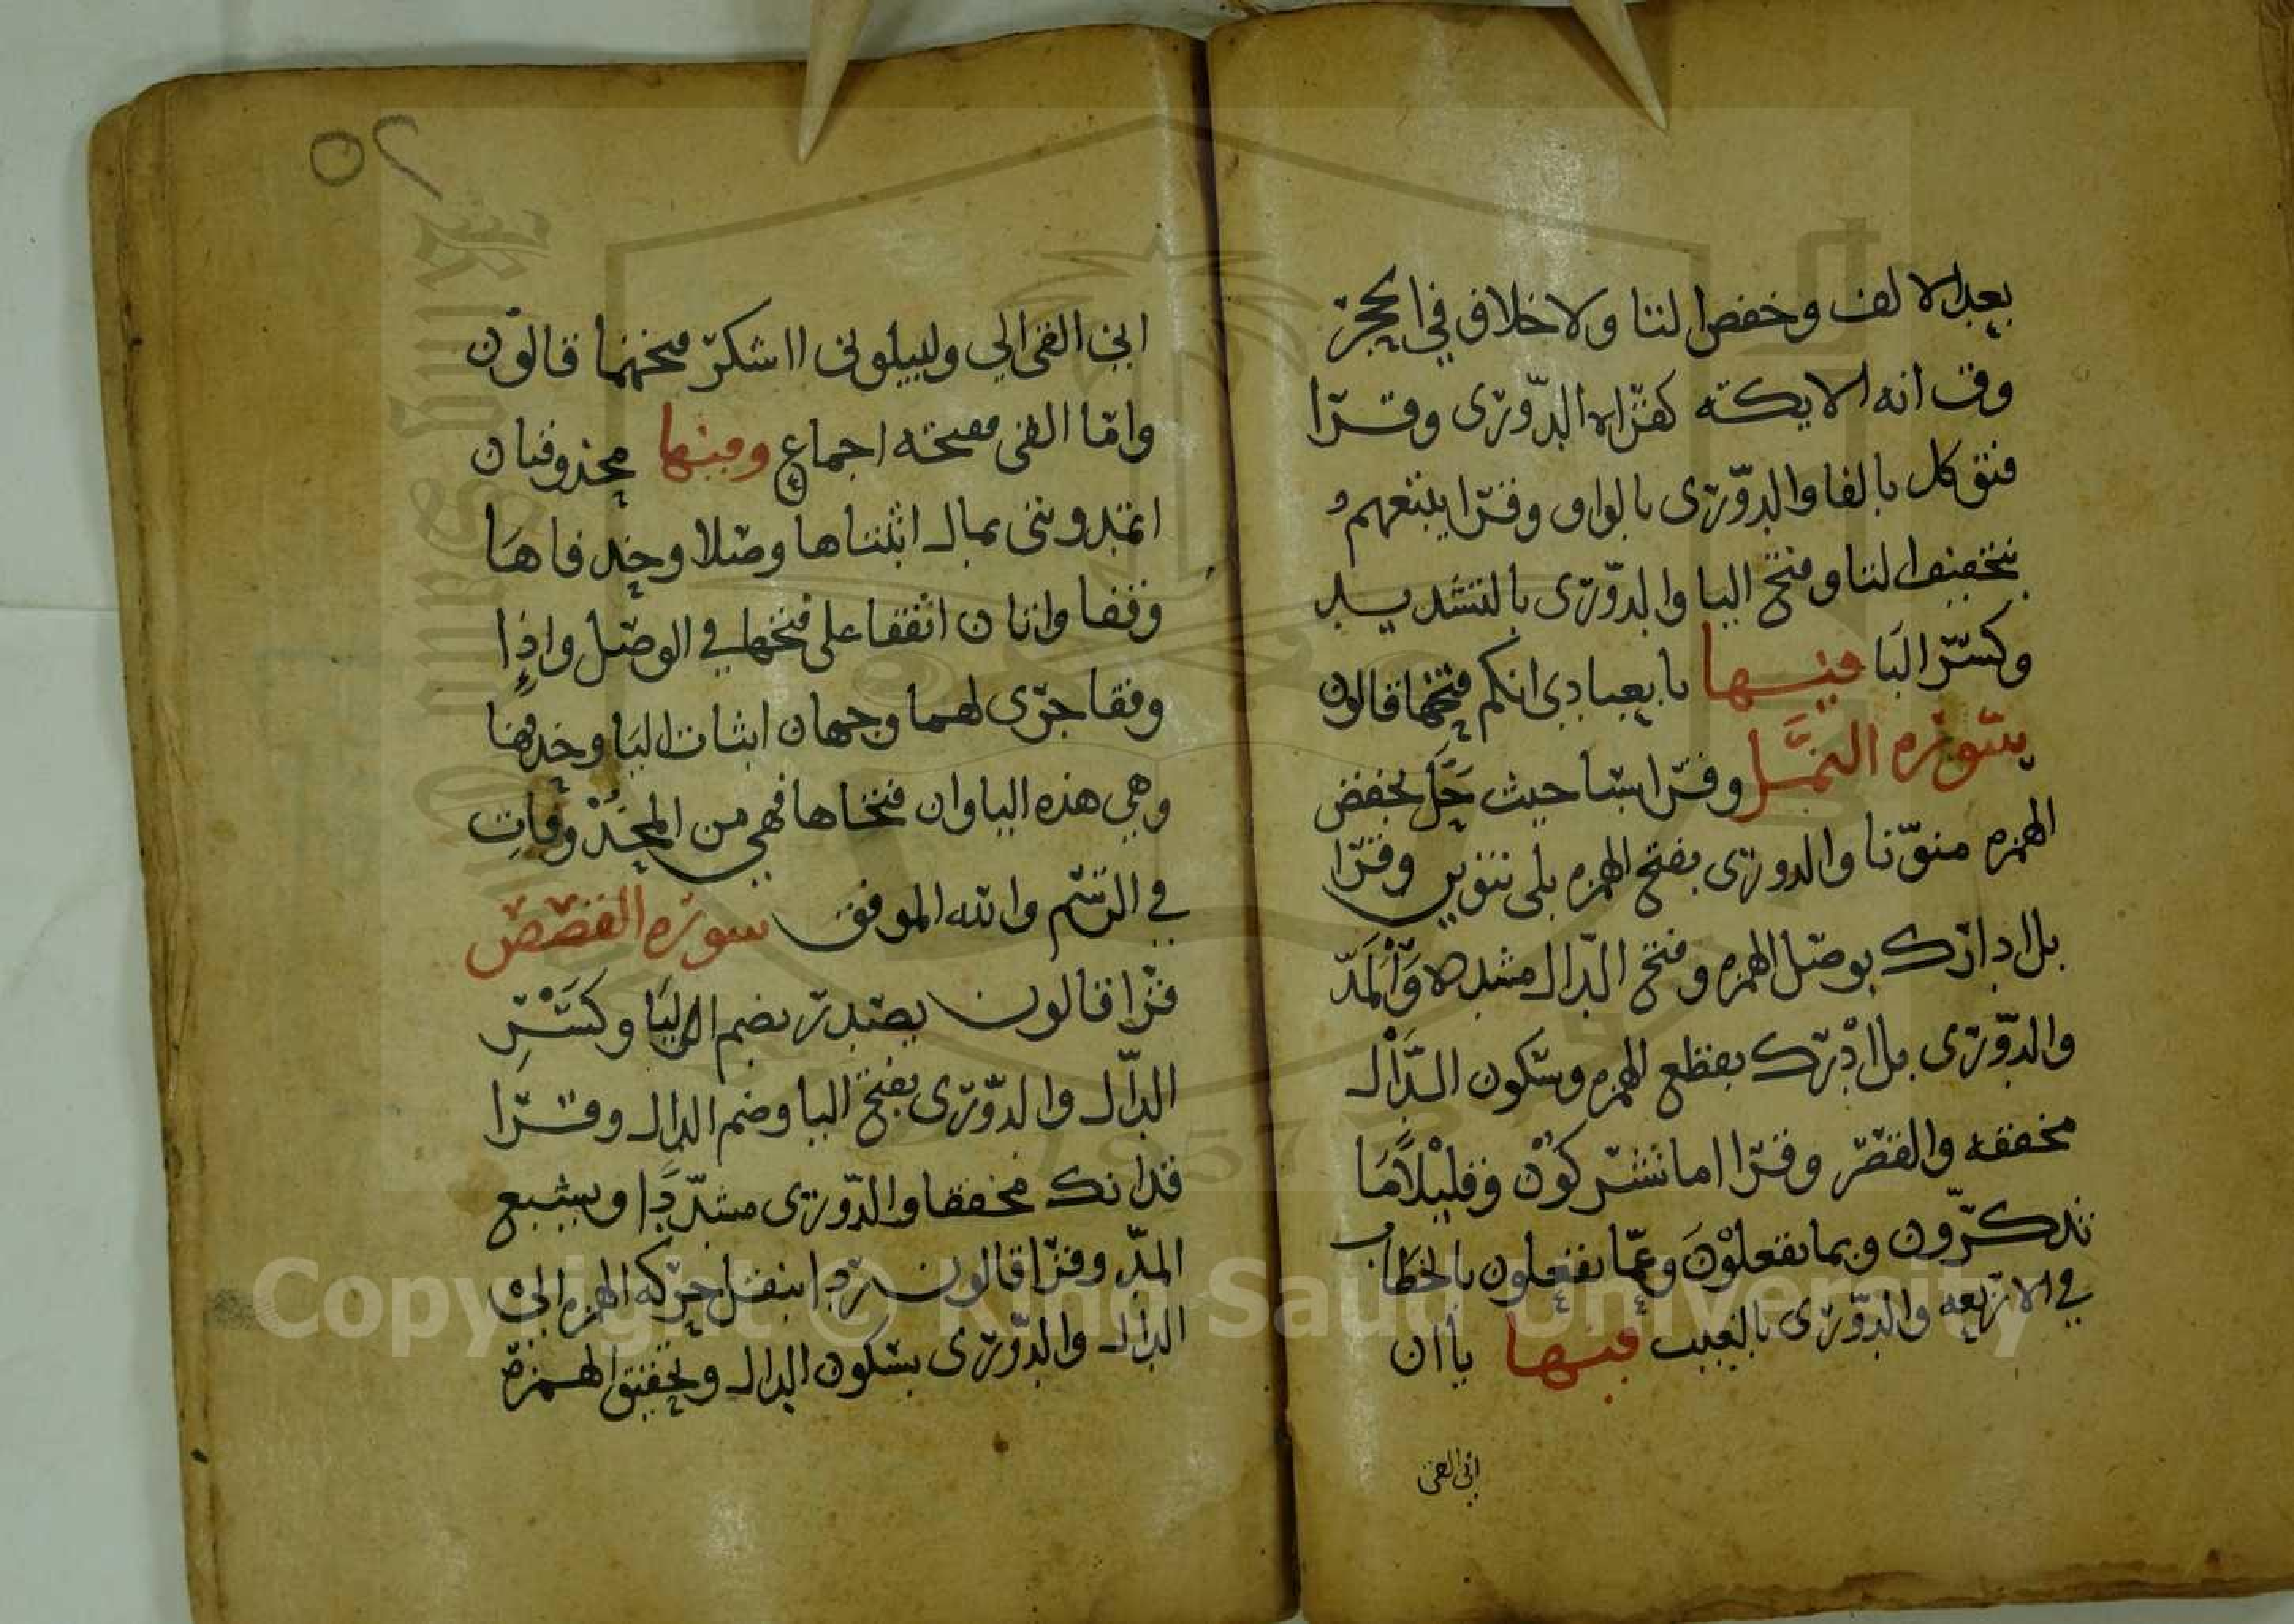 بعد الالف وخفض التا ولا خلاف في الحجر
وق انه الايكة كقراه الدوري وقرا
فتوكل بالفا والدوري بالواو وقرا يتبعهم
بتخفيف التا وفتح البا والدوري بالتشديد
وكسر البا فيها يا يعبادي انكم فتحها قالون
سورة النمل وقرا سبا حيث حل بخفض
الهمزه منونا والدوري بفتح الهمزه بلى تنوين وقرا
بل ادارك بوصل الهمزه وفتح الدال مشدده والمد
والدوري بل ادرك بقطع الهمزه وسكون الدال
مخففه والقصر وقرا اما تشركون وقليلا ما
تذكرون وبما تفعلون وعما تفعلون بالخطاب
في الاربعه والدوري بالغيب فيها يا ان
اني القى
اني القي الي وليبلوني ااشكر فتحهما قالون
واما القى ففتحه اجماع ومنها محذوفتان
اتمدونني بمال اثبتناها وصلا وحذفاها
وقفا واتان اتفقا على فتحها في الوصل واذا
وقفا جرى لهما وجهان اثبات اليا وحذفها
وهي هذه اليا وان فتحناها فهي من المحذوفات
في الرسم والله الموفق سورة القصص
قرا قالون يصدر بضم اليا وكسر
الدال والدوري بفتح اليا وضم الدال وقرا
فذانك مخففا والدوري مشددا ويشبع
المد وقرا قالون ردا بنقل حركه الهمزه الى
الدال والدوري بسكون الدال وتحقيق الهمزة
Copyright © King Saud University
1957